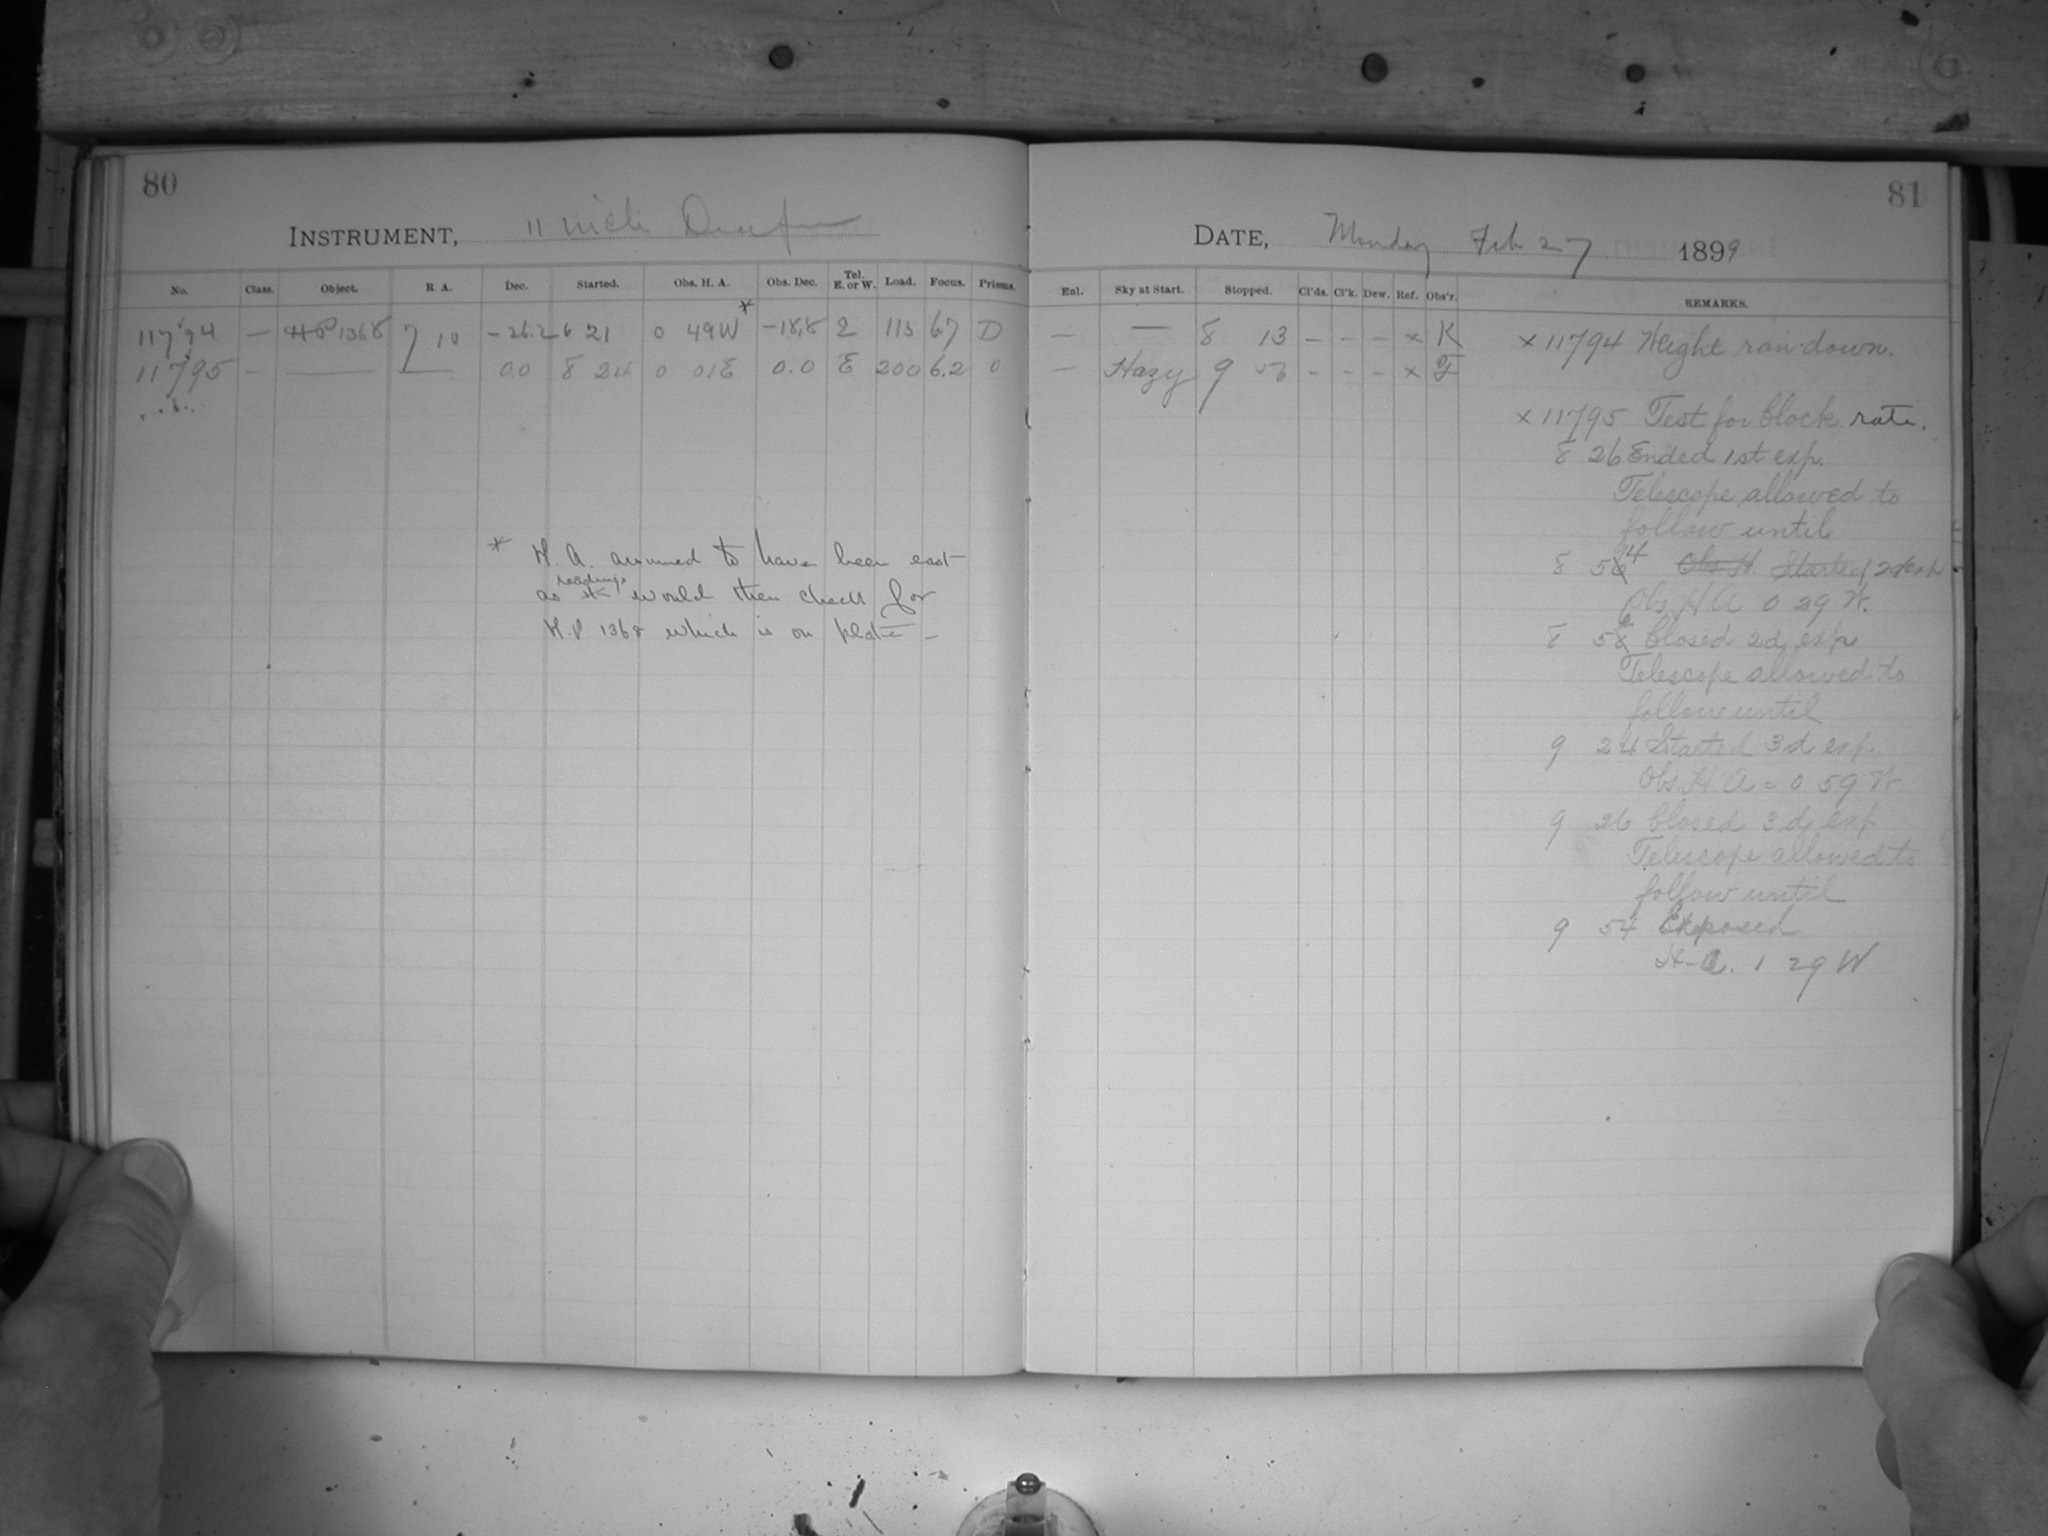 80
INSTRUMENT, 11 inch Draper
No. Class. Object. R A. Dec. Started. Obs. H. A. Obs. Dec. Tel. E. or W. Load. Focus. Prisms.
11794 — HP 1368 7 10 -26.2 6 21 0 49W* -18,8 2 115 67 D
11795 — — — 0.0 8 24 0 01E 0.0 E 200 6.2 0
* H. A. assumed to have been east
as readings would then check for
H.P 1368 which is on plate –
81
DATE, Monday Feb 27 1899
Enl. Sky at Start. Stopped. Cl'ds. Cl'k. Dew. Ref. Obs'r. REMARKS.
— — 8 13 - - - x K x 11794 Weight ran down.
— Hazy 9 56 - - - x F
x 11795 Test for Clock rate.
8 26 Ended 1st exp.
Telescope allowed to
follow until
8 54 Obs H. Started 2d exp
Obs. H. A 0 29 W.
8 56 Closed 2d exp
Telescope allowed to
follow until
9 24 Started 3d exp.
Obs. H. A = 0 59 W
9 26 Closed 3d exp
Telescope allowed to
follow until
9 54 Exposed
H-A. 1 29 W